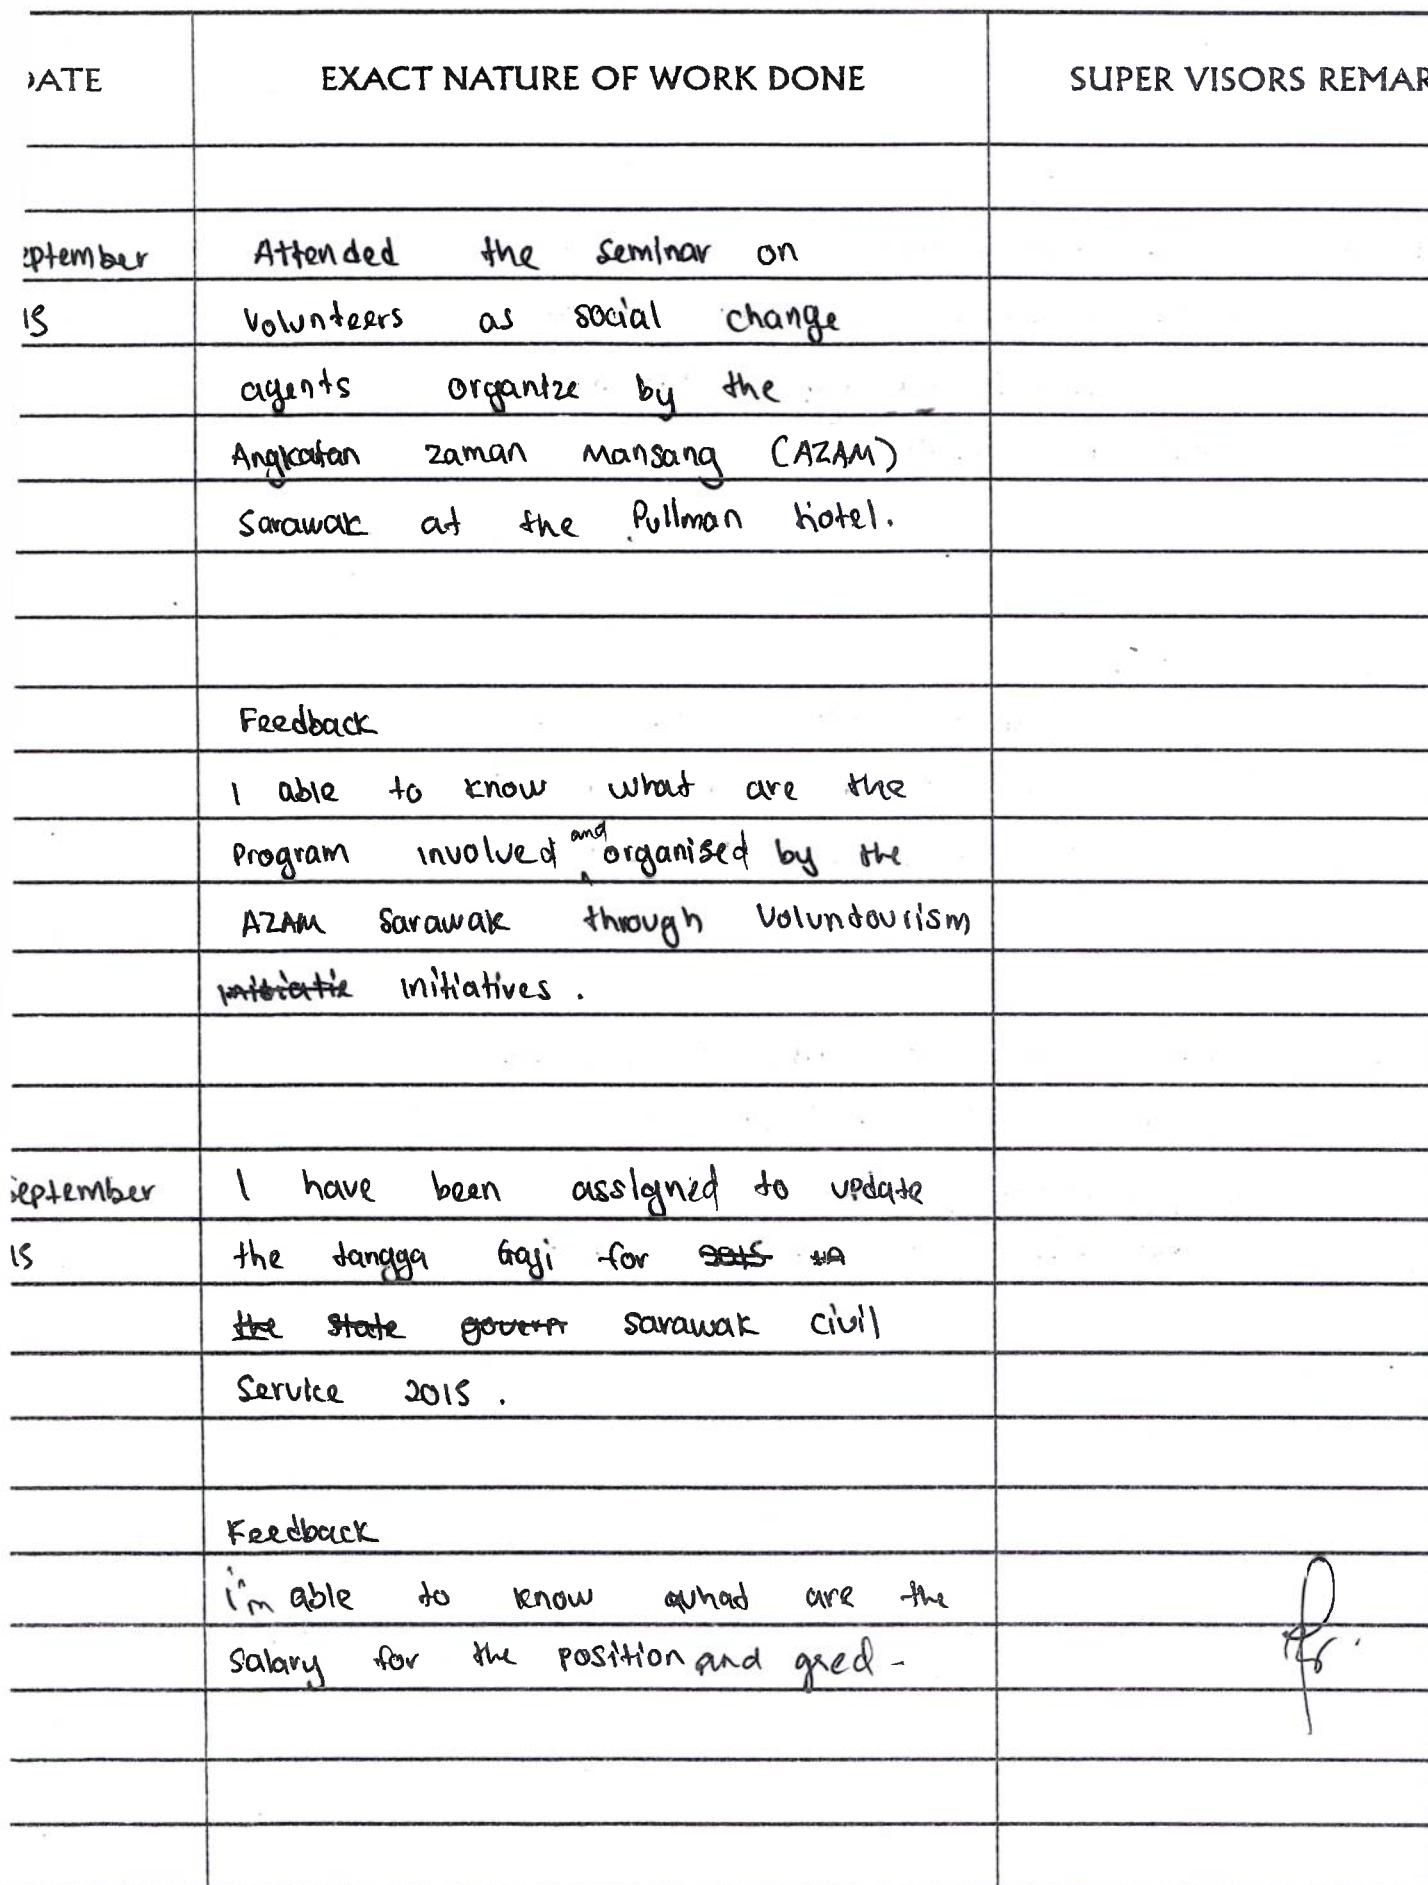 DATE EXACT NATURE OF WORK DONE SUPER VISORS REMAR
eptember Attended the seminar on
15 Volunteers as social change
agents organize by the
Angkatan zaman Mansang (AZAM)
Sarawak at the Pullman hotel.
Feedback
I able to know what are the
program involved and organised by the
AZAM Sarawak through Voluntourism
initiatives.
September I have been assigned to update
15 the tangga Gaji for 2015
the state govern sarawak civil
Service 2015.
Feedback
i'm able to know what are the
salary for the position and gred-